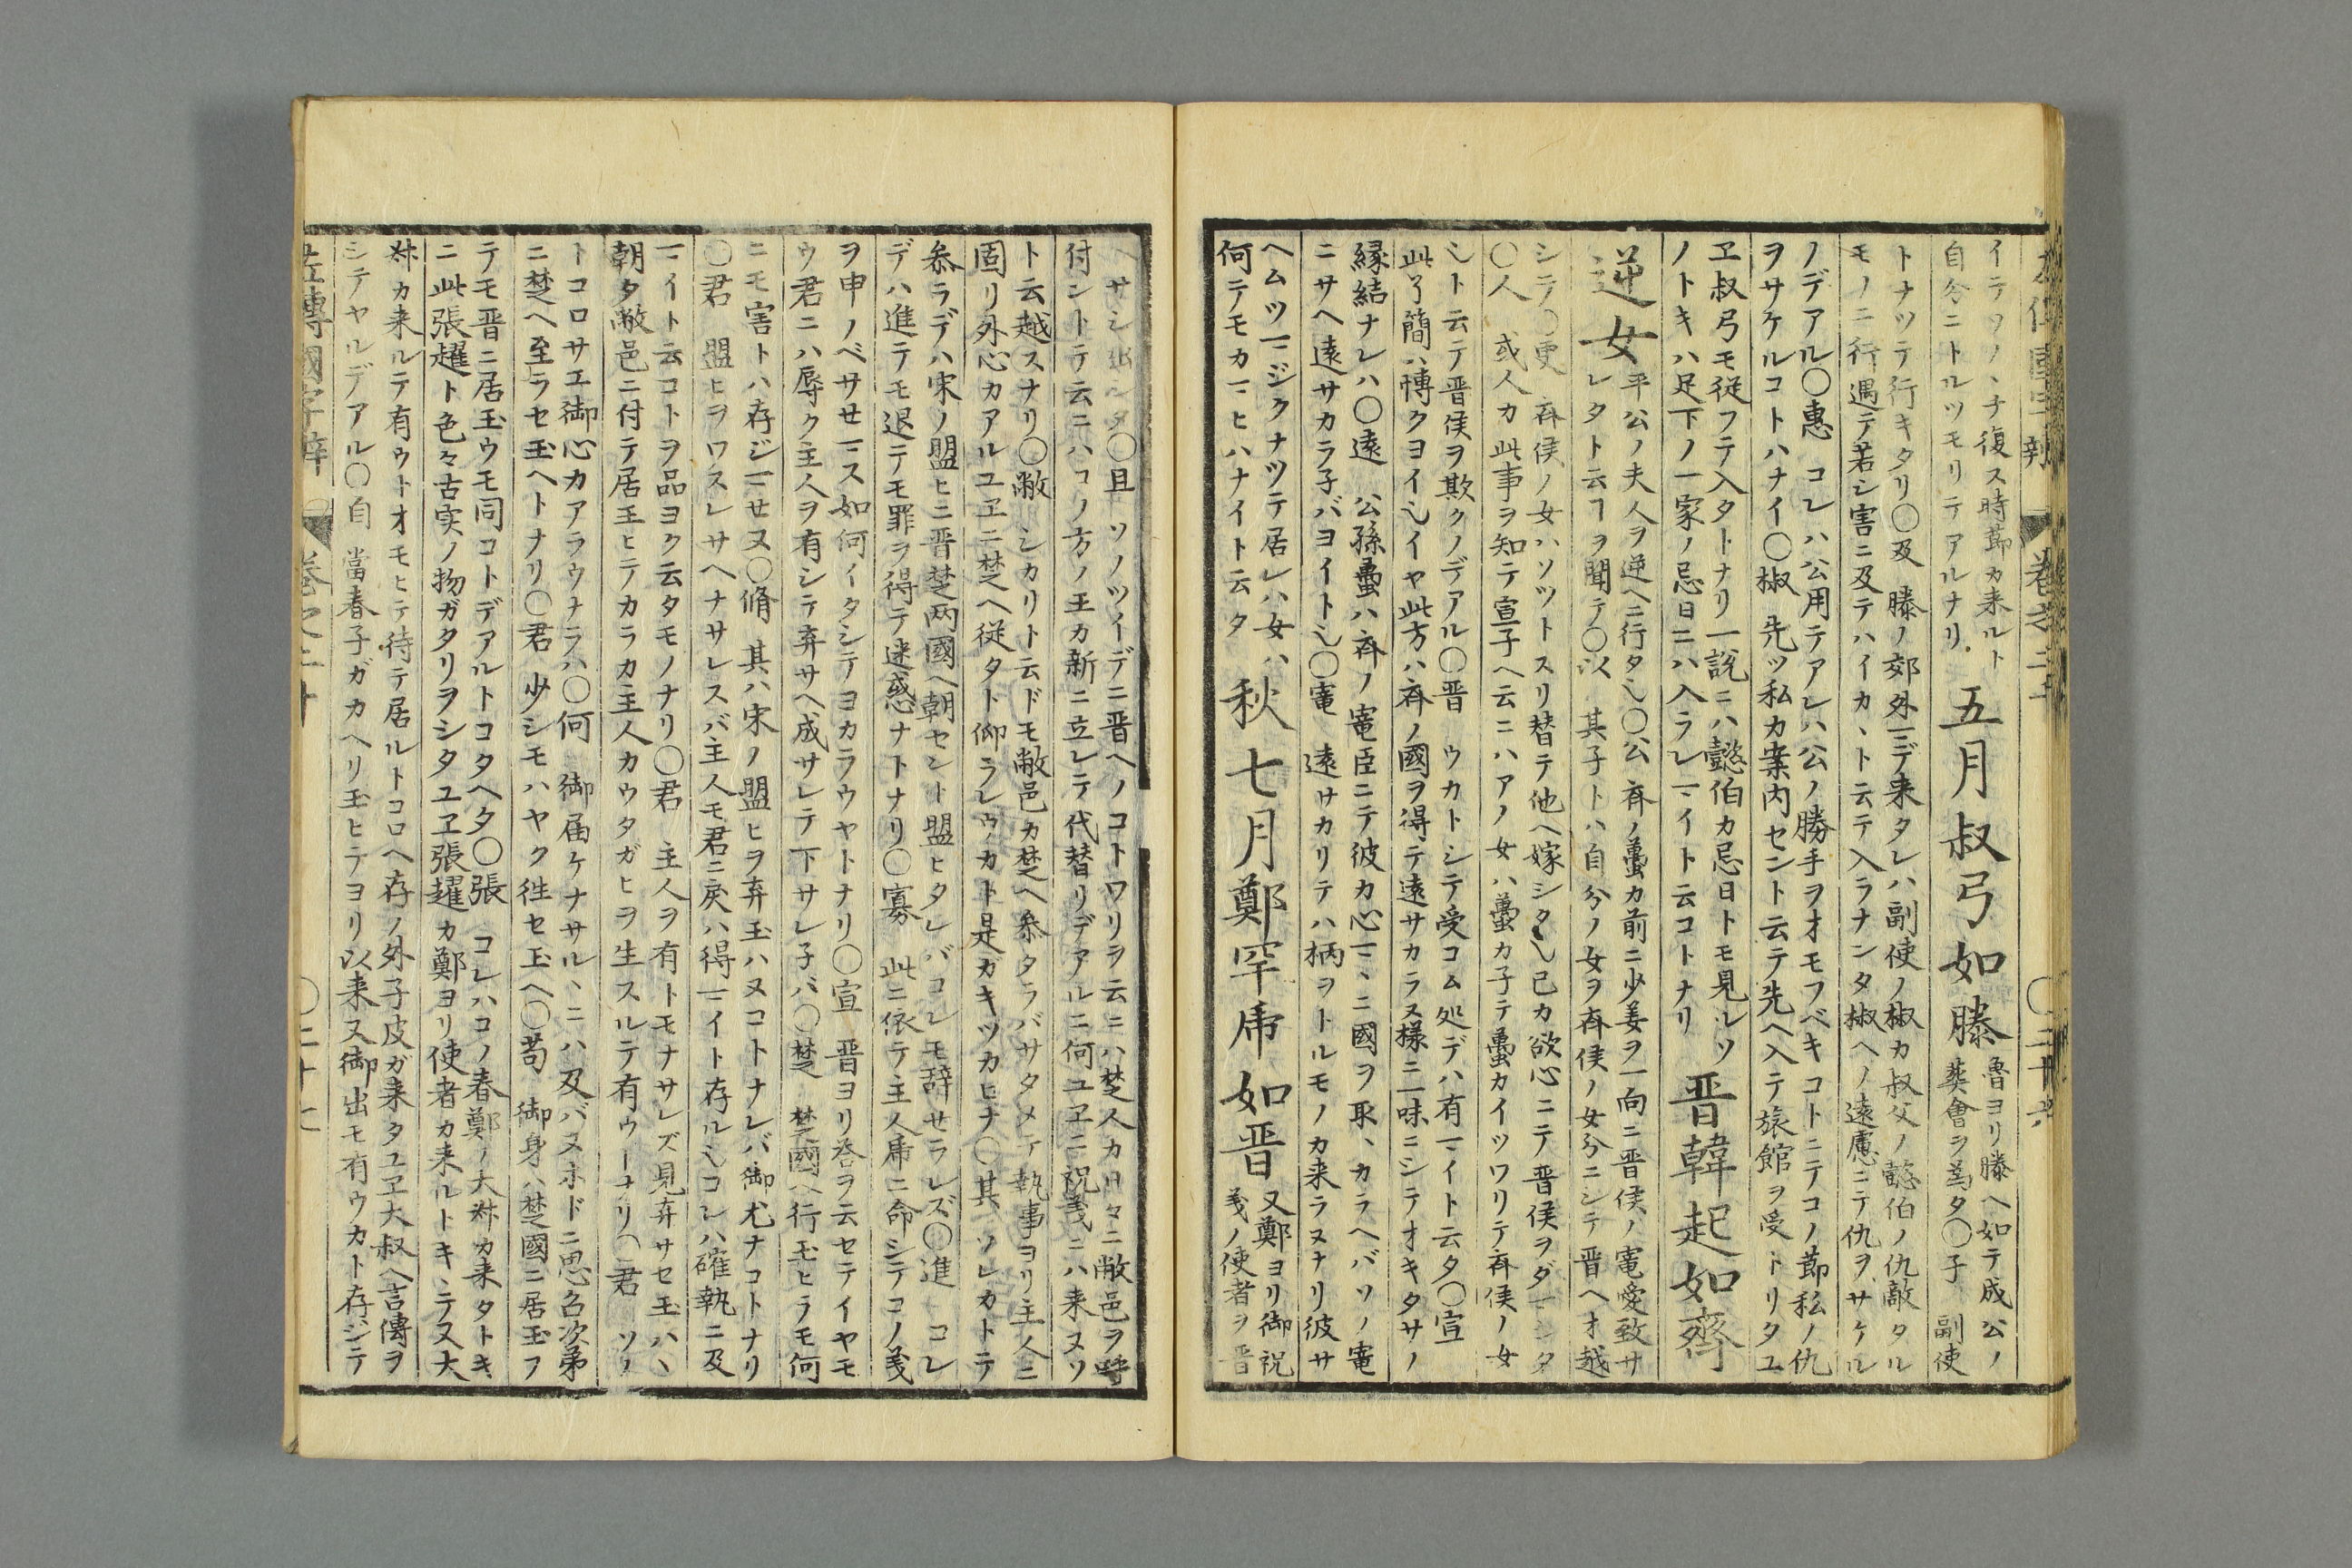 イテツノヽチ復ス時莭カ来ルト
自分ニトルツモリテアルナリ
五月叔弓如滕
魯ヨリ滕ヘ如テ成公ノ
葬會ヲ為タ〇子 副使
トナツテ行キタリ〇及 滕ノ郊外マデ来タレハ副使ノ椒カ叔父ノ懿伯ノ仇敵タル
モノニ行遇テ若シ害ニ及テハイカヽト云テ入ラナンタ椒ヘノ遠慮ニテ仇ヲサケル
ノデアル〇惠 コレハ公用テアレハ公ノ勝手ヲオモフベキコトニテコノ莭私ノ仇
ヲサケルコトハナイ〇椒 先ツ私カ案内セント云テ先ヘ入テ旅館ヲ受トリタユ
ヱ叔弓モ従フテ入タトナリ一說ニハ懿伯カ忌日トモ見ルソ
ノトキハ足下ノ一家ノ忌日ニハ入ラレマイト云コトナリ
晋韓起如齊
逆女
平公ノ夫人ヲ逆ヘニ行タ也〇公 斉ノ蠆カ前ニ少姜ヲ一向ニ晋侯ノ寵愛致サ
レタト云ヿヲ聞テ〇以 其子トハ自分ノ女ヲ斉侯ノ女分ニシテ晋ヘオ越
シテ〇更 斉侯ノ女ハソツトスリ替テ他ヘ嫁シタ也己カ欲心ニテ晋侯ヲダマシタ
〇人 或人カ此事ヲ知テ宣子ヘ云ニハアノ女ハ蠆カ子テ蠆カイツワリテ斉侯ノ女
也ト云テ晋侯ヲ欺クノデアル〇晋 ウカトシテ受コム処デハ有マイト云タ〇宣
此了簡ハ慱クヨイ也イヤ此方ハ斉ノ國ヲ得テ遠サカラヌ樣ニ一味ニシテオキタサノ
縁結ナレハ〇遠 公孫蠆ハ斉ノ寵臣ニテ彼カ心マヽニ國ヲ取、カラヘバソノ寵
ニサヘ遠サカラ子バヨイト也〇寵 遠サカリテハ柄ヲトルモノカ来ラヌナリ彼サ
ヘムツマジクナツテ居レハ女ハ
何テモカマヒハナイト云タ
秋七月鄭罕虎如晋
又鄭ヨリ御祝
義ノ使者ヲ晋
ヘサシ出シタ〇且 ソノツイデニ晋ヘノコトワリヲ云ニハ楚人カ日々ニ敝邑ヲ呼
付ントテ云ニハコノ方ノ王カ新ニ立レテ代替リデアルニ何ユヱニ祝義ニハ来ヌソ
ト云越スナリ〇敝 シカリト云ドモ敝邑カ楚ヘ参タラバサタメテ執事ヨリ主人ニ
固リ外心カアルユヱニ楚ヘ従タト仰ラレウカト是カキツカヒナ〇其 ソレカトテ
参ラデハ宋ノ盟ヒニ晋楚两國ヘ朝セント盟ヒタレバコレモ辞セラレズ〇進 コレ
デハ進テモ退テモ罪ヲ得テ迷惑ナトナリ〇寡 此ニ依テ主人虎ニ命シテコノ義
ヲ申ノベサセマス如何イタシテヨカラウヤトナリ〇宣 晋ヨリ荅ヲ云セテイヤモ
ウ君ニハ辱ク主人ヲ有シテ弃サヘ成サレテ下サレ子バ〇楚 楚國ヘ行玉ヒラモ何
ニモ害トハ存ジマセヌ〇脩 其ハ宋ノ盟ヒヲ弃玉ハヌコトナレバ御尤ナコトナリ
〇君 盟ヒヲワスレサヘナサレスバ主人モ君ニ戻ハ得マイト存ル也コレハ確執ニ及
マイト云コトヲ品ヨク云タモノナリ〇君 主人ヲ有トモナサレズ見弃サセ玉ハヽ
朝夕敝邑ニ付テ居玉ヒテカラカ主人カウタガヒヲ生スルテ有ウーナリ〇君 ソノ
トコロサエ御心カアラウナラハ〇何 御届ケナサルヽニハ及バヌホドニ思召次第
ニ楚ヘ至ラセ玉ヘトナリ〇君 少シモハヤク徃セ玉ヘ〇苟 御身ハ楚國ニ居玉フ
テモ晋ニ居玉ウモ同コトデアルトコタヘタ〇張 コレハコノ春鄭ノ大叔カ来タトキ
ニ此張趯ト色々古実ノ物ガタリヲシタユヱ張趯カ鄭ヨリ使者カ来ルトキヽテ又大
叔カ来ルテ有ウトオモヒテ待テ居ルトコロヘ存ノ外子皮ガ来タユヱ大叔ヘ言傳ヲ
シテヤルデアル〇自 當春子ガカヘリ玉ヒテヨリ以来又御出モ有ウカト存ジテ
左傳國字辯 卷之二十 〇二十七